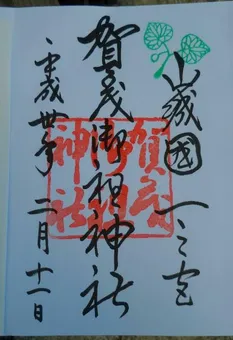 山城國一之宮
賀茂御祖神社
平成卅年二月十一日
賀茂御祖神社